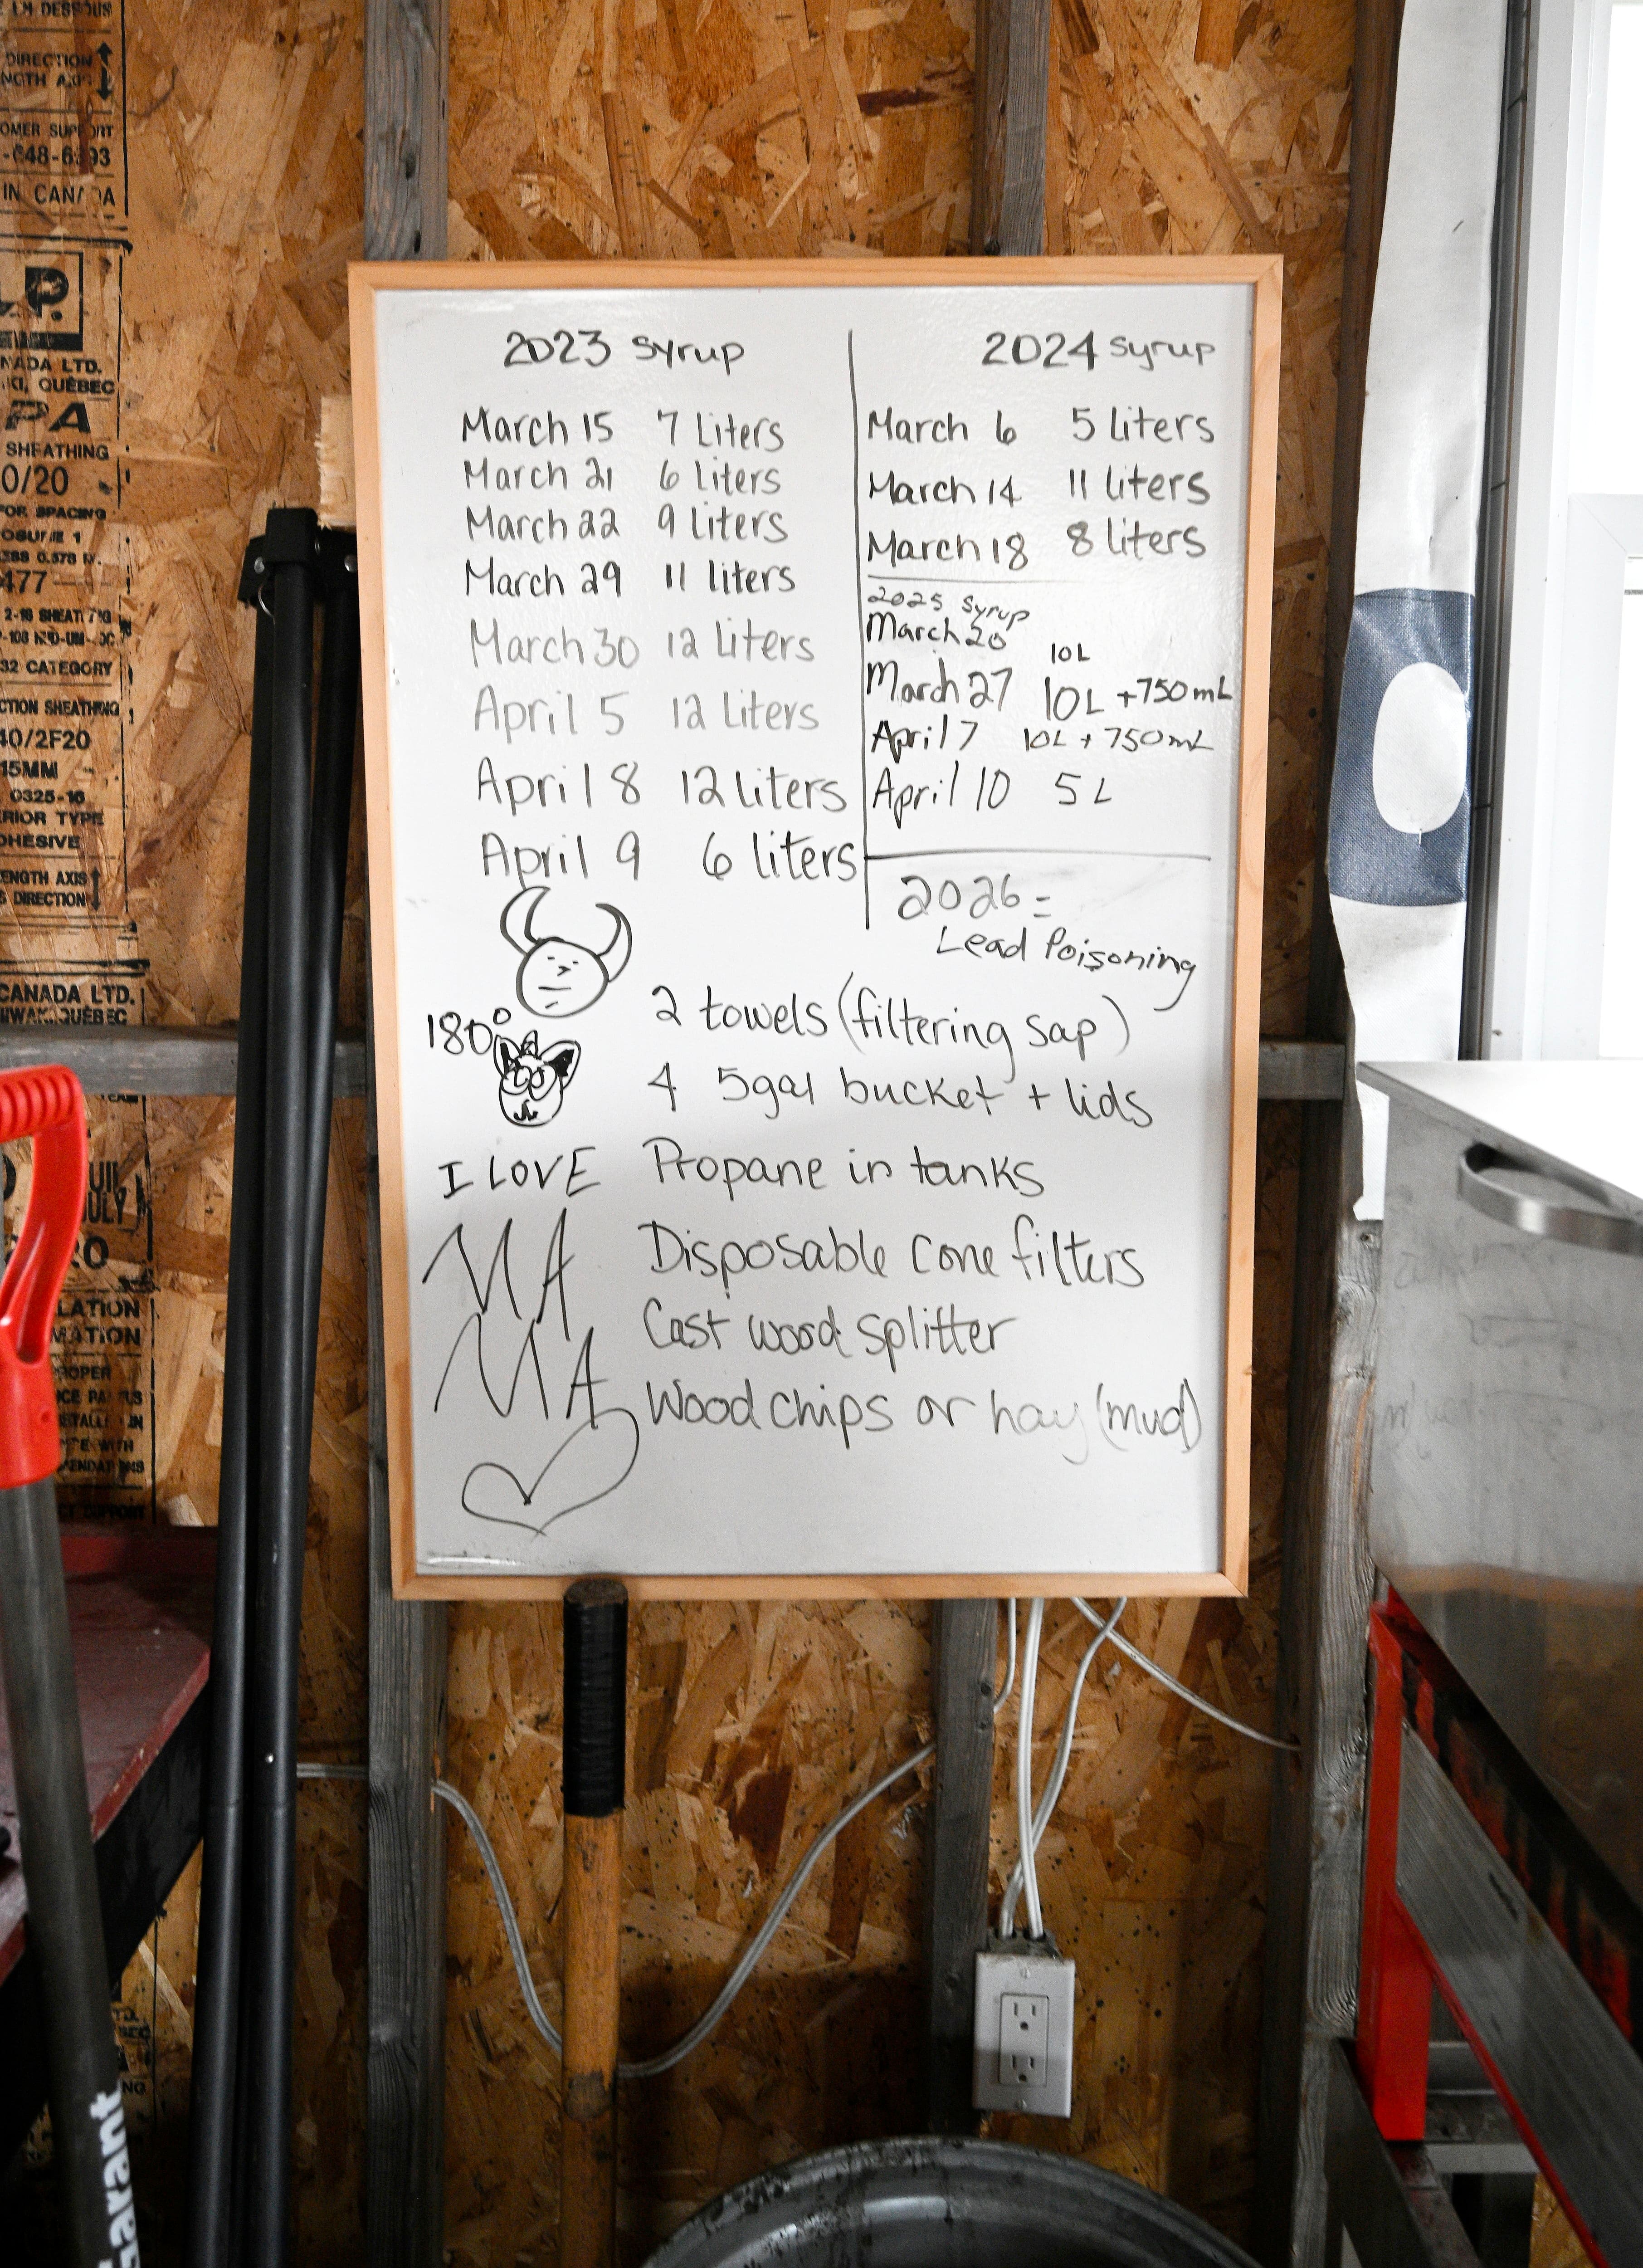 LM DESSOUS
DIRECTION
NGTH AXIS
OMER SUPPORT
-648-6393
IN CANADA
L.P.
NADA LTD.
KI, QUÉBEC
PA
SHEATHING
0/20
FOR SPACING
OSURE 1
477
2-18 SHEATHING
32 CATEGORY
CTION SHEATHING
40/2F20
15MM
0325-16
ERIOR TYPE
DHESIVE
ENGTH AXIS
S DIRECTION
CANADA LTD.
QUÉBEC
LATION
MATION
PROPER
2023 syrup
March 15 7 Liters
March 21 6 Liters
March 22 9 Liters
March 29 11 liters
March 30 12 liters
April 5 12 Liters
April 8 12 liters
April 9 6 liters
2024 syrup
March 6 5 liters
March 14 11 liters
March 18 8 liters
2025 Syrup
March 20 10L
March 27 10L +750mL
April 7 10L + 750mL
April 10 5 L
2026 =
Lead Poisoning
180°
I LOVE
MA
MA
2 towels (filtering sap)
4 5gal bucket + lids
Propane in tanks
Disposable cone filters
Cast wood splitter
Wood chips or hay (mud)
Garant